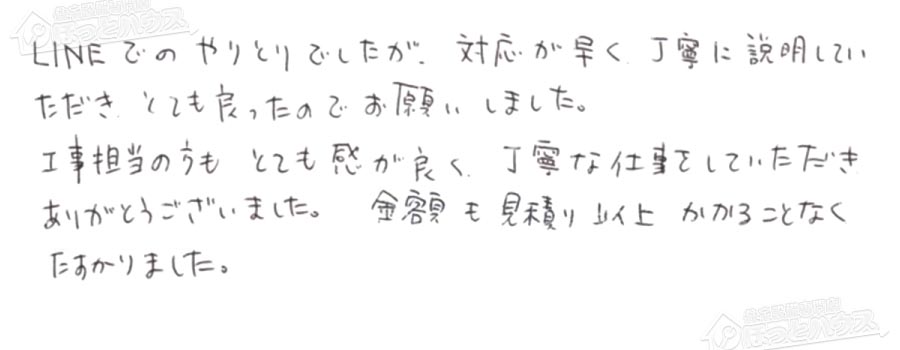 LINEでのやりとりでしたが、対応が早く、丁寧に説明してい
ただき、とても良ったのでお願いしました。
工事担当の方も とても感が良く、丁寧な仕事をしていただき
ありがとうございました。 金額も見積り以上 かかることなく
たすかりました。
ほっとハウス